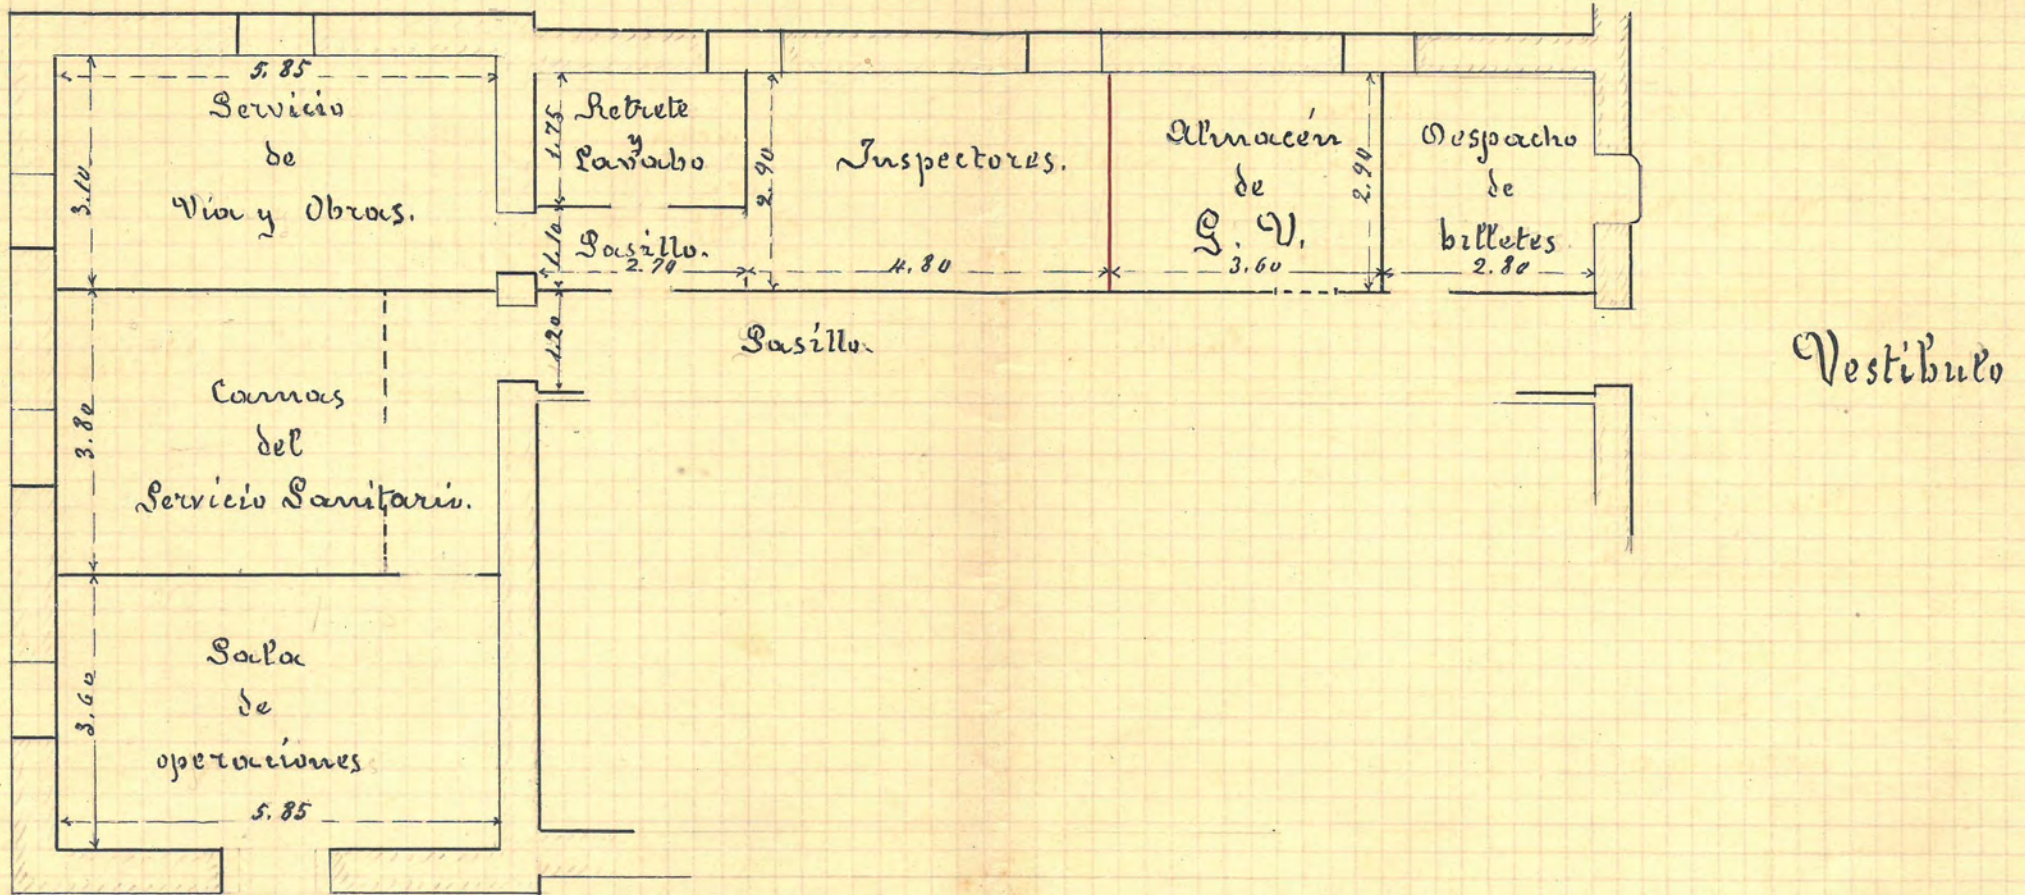 5.85
Servicio
de
Vía y Obras.
3.10
1.75
Retrete
y
Lavabo
2.90
1.10
Pasillo.
2.70
Inspectores.
4.80
Almacén
de
G. V.
3.60
2.90
Despacho
de
billetes
2.80
1.20
Pasillo.
Vestíbulo
3.80
Camas
del
Servicio Sanitario.
3.60
Sala
de
operaciones
5.85